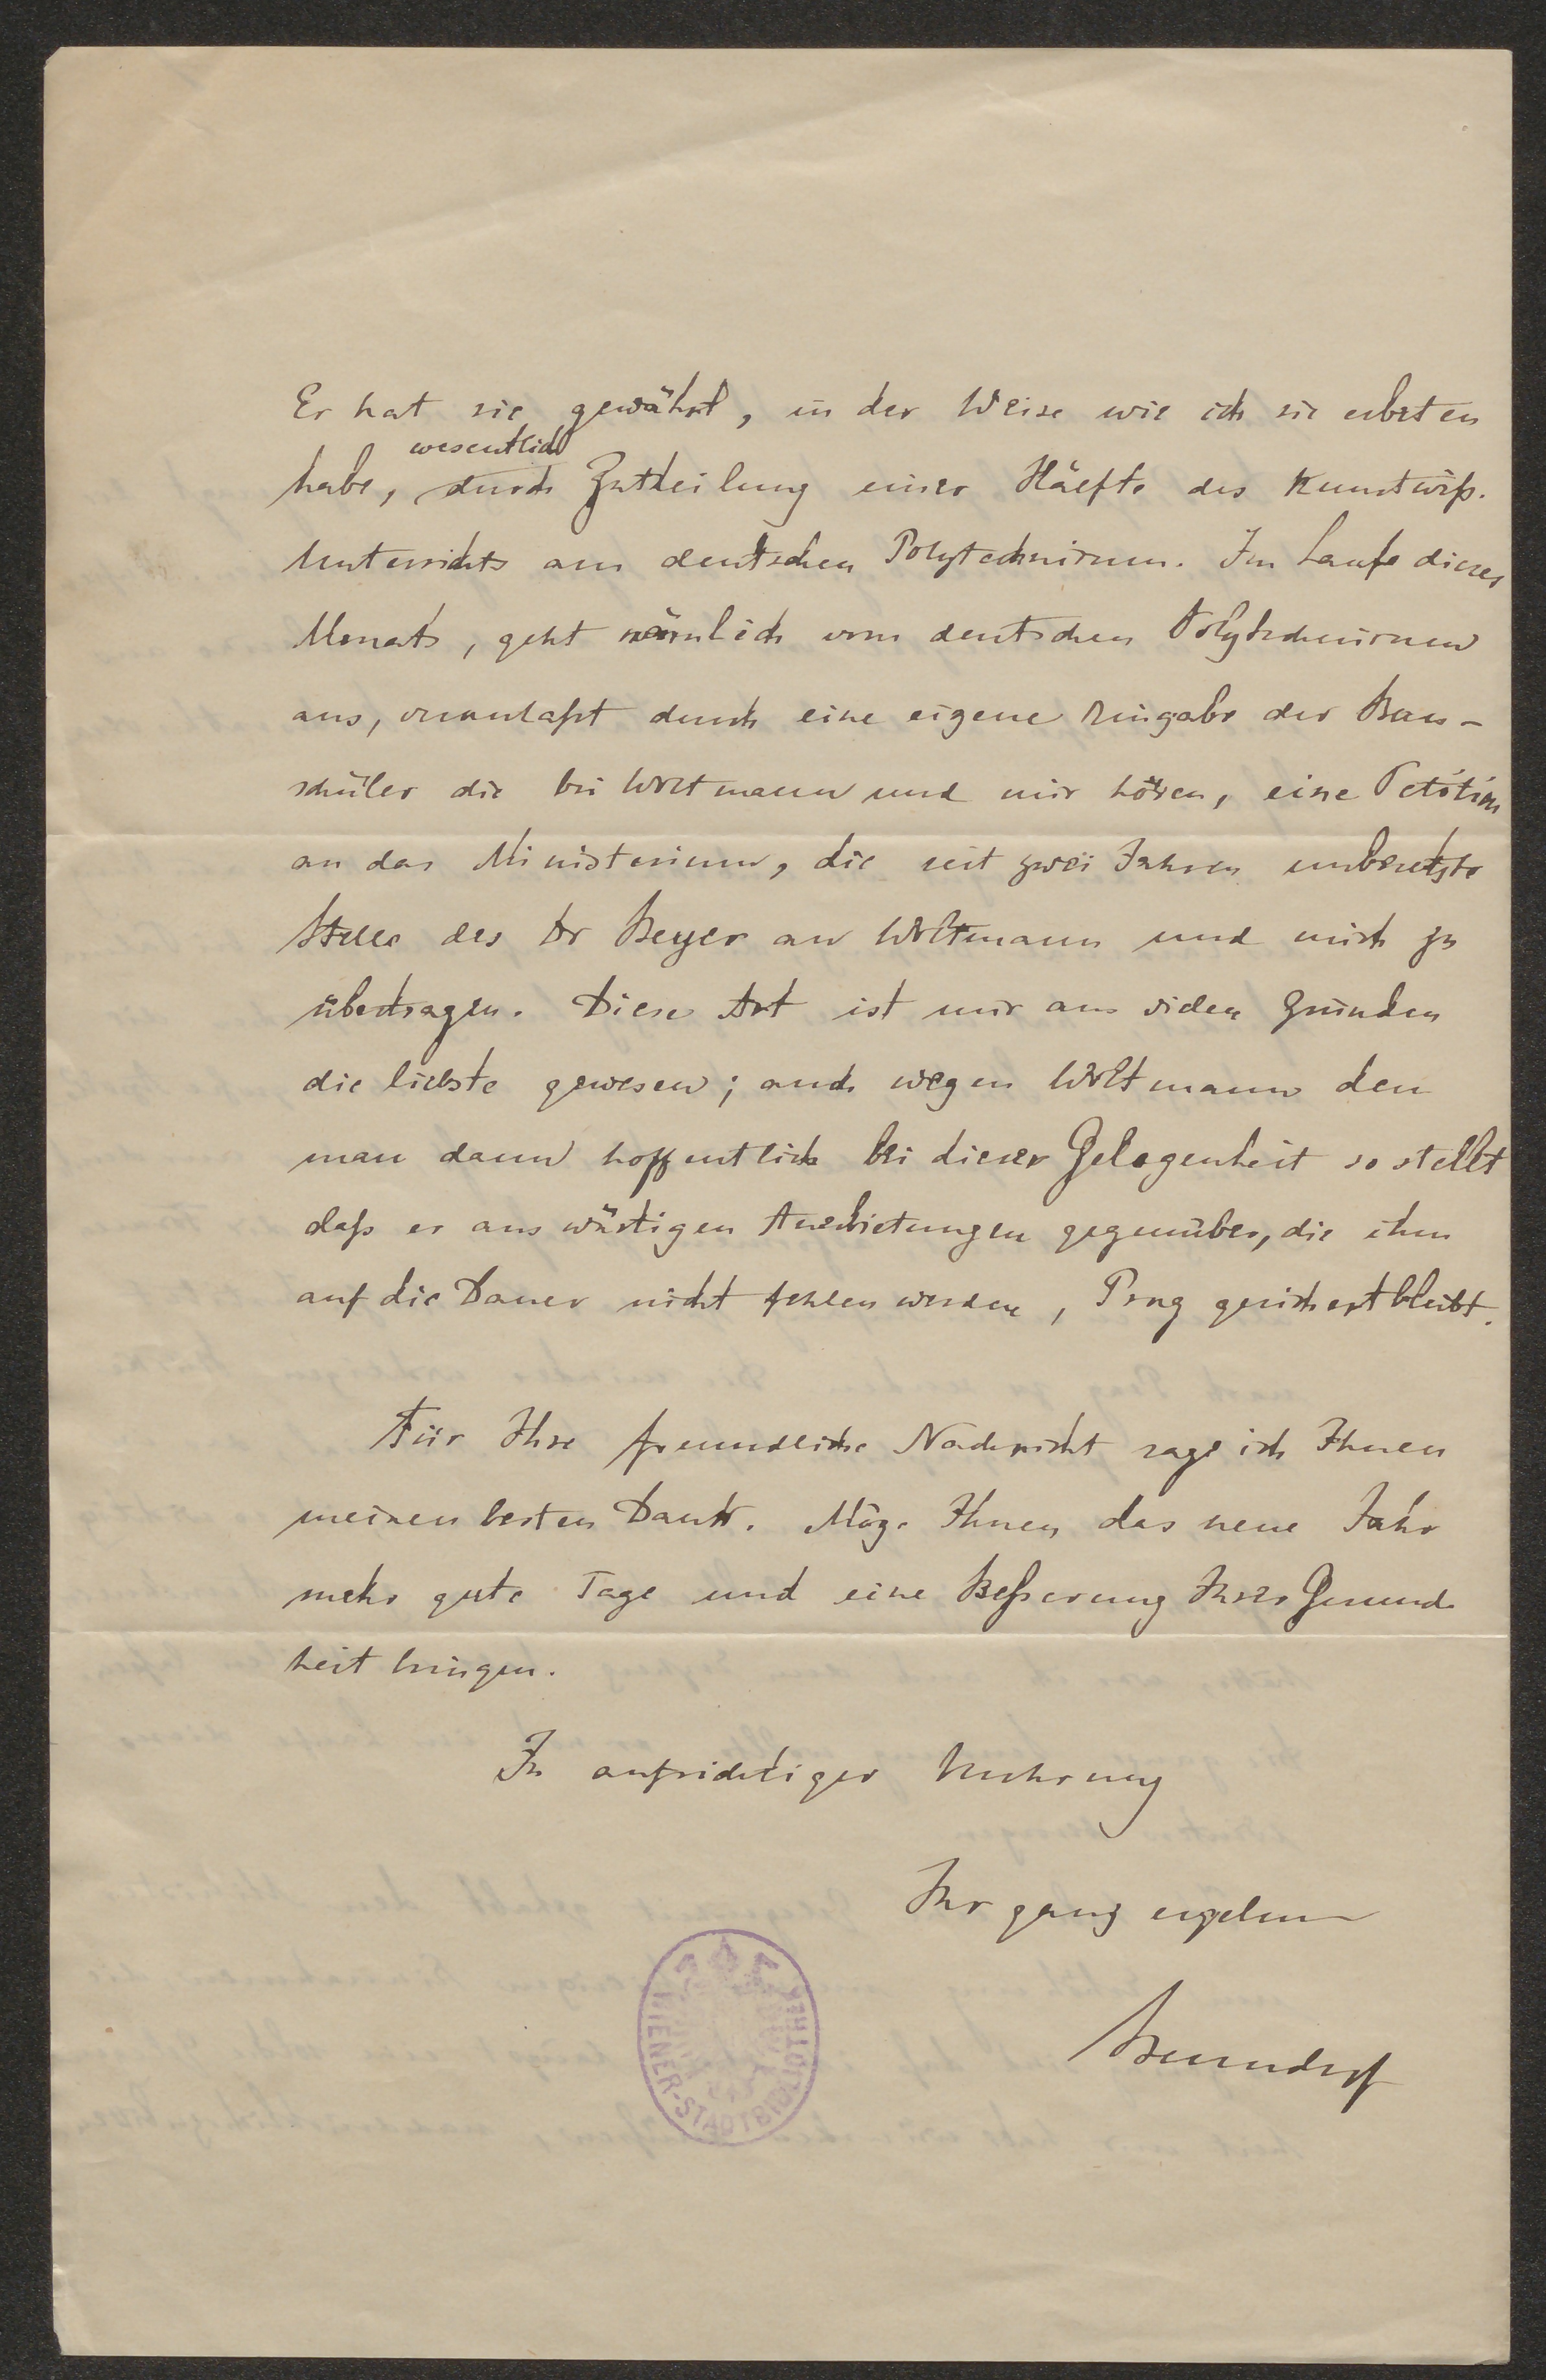 Er hat sie gewährt, in der Weise wie ich sie erbeten
wesentlich
habe, durch Zutheilung einer Hälfte des Kunstwiß.
Unterrichts am deutschen Polytechnicum. Im Laufe dieses
Monats, geht nämlich vom deutschen Polytechnicum
aus, veranlaßt durch eine eigene Eingabe der Bau-
schüler die bei Woltmann und mir hören, eine Petition
an das Ministerium, die seit zwei Jahren unbesetzte
Stelle des Dr Beyer an Woltmann und mich zu
übertragen. Diese Art ist mir aus vielen Gründen
die liebste gewesen; auch wegen Woltmann den
man dann hoffentlich bei dieser Gelegenheit so stellt
daß er auswärtigen Anerbietungen gegenüber, die ihm
auf die Dauer nicht fehlen werden, Prag gesichert bleibt.
Für Ihre freundliche Nachricht sage ich Ihnen
meinen besten Dank. Möge Ihnen das neue Jahr
mehr gute Tage und eine Beßerung Ihrer Gesund
heit bringen.
In aufrichtiger Verehrung
Ihr ganz ergebener
Benndorf
WIENER-STADTBIBLIOTHEK